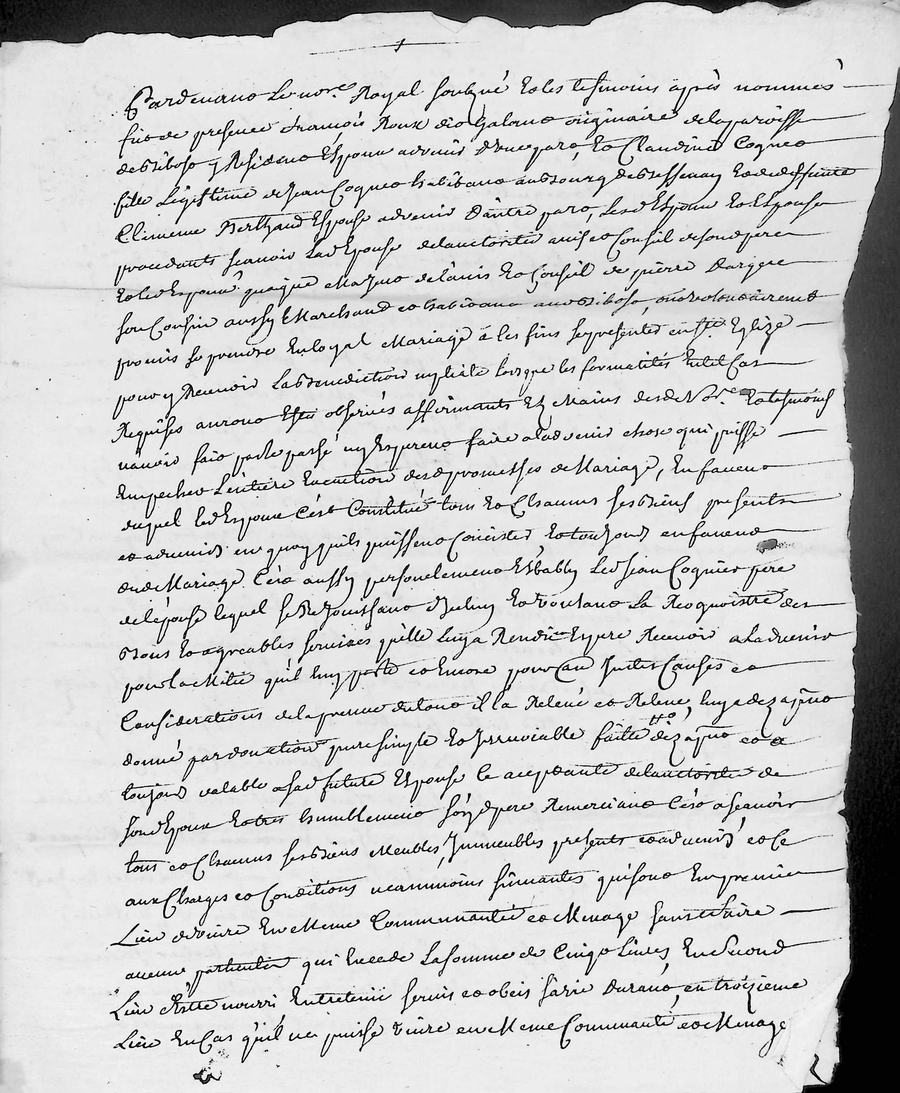 Pardevant Le nore. Royal soubzné Et les tesmoins äprès nommés
fut de presence francois Roux dit Galand originaire de la parroisse
de y Residant Espoux advenir d'une part, Et Claudine Cogniet
fille Légitime de Jean Cogniet habitant au bourg de bessenay Et de deffuncte
Climeme Berthaud Espouse advenir d'autre part, Lesd Espoux Et Espouse
procedants scavoir Lad Epouse de lauctorité avis et Conseil de sond pere
Et led Espoux quoique Majeur de l'avis Et Conseil de pierre
son Cousin aussy Marchand et habitant ont volontairement
promis se prendre En loyal Mariage à les fins se presenter en ste Eglize
pour y Recevoir La benediction nuptialle lorsque les formalités En tel Cas
Requises auront Esté observés affirmants Ez Mains dud Nore. Et tesmoins
n'avoir fait par le passé ny Espreno faire a ladvenir chose qui puisse
Empecher L'entiere Execution desd promesses de Mariage, En faveur
duquel led Espoux C'est Constitué tous Et Chacuns ses biens presents
et advenirs en quoy quils puissent Concister Et toujours en faveur
dud Mariage C'est aussy personelement Estably Led Jean Cognier pere
de l'épouse lequel se Rejouissant d'Iceluy Et voulant La Recognoistre des
bons Et agreables services quelle luy a Rendu Espere Recevoir a Ladvenir
pour La Mitié qu'il luy porte et Encore pour Causes et
Considerations de la preuve dutout il la Relevé et Releve, luy a dez a pnt
donné par donation pure simple Et Irrevocable faitte dez a pnt et a
toujours valable a sad future Espouse la aceptante de lauctorité de
sond Epoux Et tres humblement sond pere Remerciant C'est a scavoir
tous et Chacuns ses biens Meubles, Immeubles presents et advenirs et Ce
aux Charges et Conditions neanmoins suivantes qui sont En premier
Lieu de vivre En Meme Communauté et Menage sans faire
aucun particulier qui Excede La somme de Cinq Livres En Second
Lieu Estre nourri Entretenu servis et obeis sa vie Durant, en troizieme
Lieu En Cas qu'il ne puisse vivre en Meme Communauté et Menage